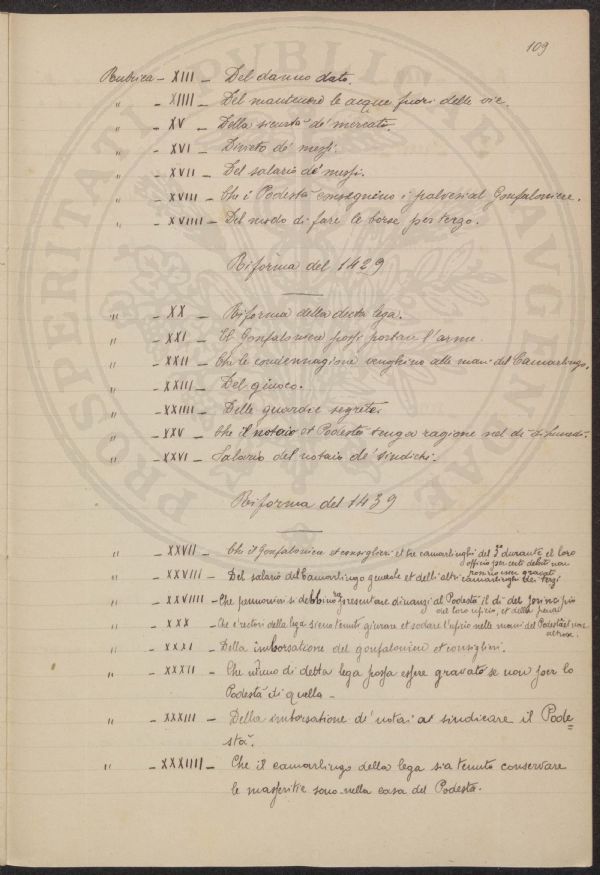 109
Rubrica - XIII - Del danno dato
" - XIIII - Del mantenere le acque fuori delle vie.
" - XV - Della sicurtà de' mercato.
" - XVI - Divieto de' messi.
" - XVII - Del salario de' messi.
" - XVIII - Che i Podestà consegnino i palvesi al Gonfaloniere.
" - XVIIII - Del modo di fare le borse per tergo.
Riforma del 1429
" - XX - Riforma della decta lega.
" - XXI - El Gonfaloniere possi portare l'arme.
" - XXII - Che le condennagioni venghino alle mani del Camarlingo.
" - XXIII - Del giuoco.
" - XXIIII - Delle guardie segrete.
" - XXV - Che il notaio et Podestà tenga ragione nel dì di lunedì.
" - XXVI - Salario del notaio de' sindichi.
Riforma del 1439
" - XXVII - Che il Gonfaloniere et consiglieri et tre camarlinghi del 3° durante el loro
officio per certi debiti non
possino esser gravati
" - XXVIII - Del salario del Camarlingo generale et delli altri camarlinghi dei terzi
" - XXVIIII - Che pannonieri si debbino rapresentare dinanzi al Podestà il dì del principio
del loro uficio, et della pena
" - XXX - Che e rectori della lega sieno tenuti giurare et sodare l'uficio nelle mani del Podestà et non
altrove.
" - XXXI - Della imborsatione del gonfaloniere et consiglieri.
" - XXXII - Che niuno di detta lega possa essere gravato se non per lo
Podestà di quella -
" - XXXIII - Della imborsatione de' notai a sindicare il Pode=
stà.
" - XXXIIII - Che il camarlingo della lega sia tenuto conservare
le masseritie sono nella casa del Podestà.
PROSPERITATI PUBLICAE AUGENDAE